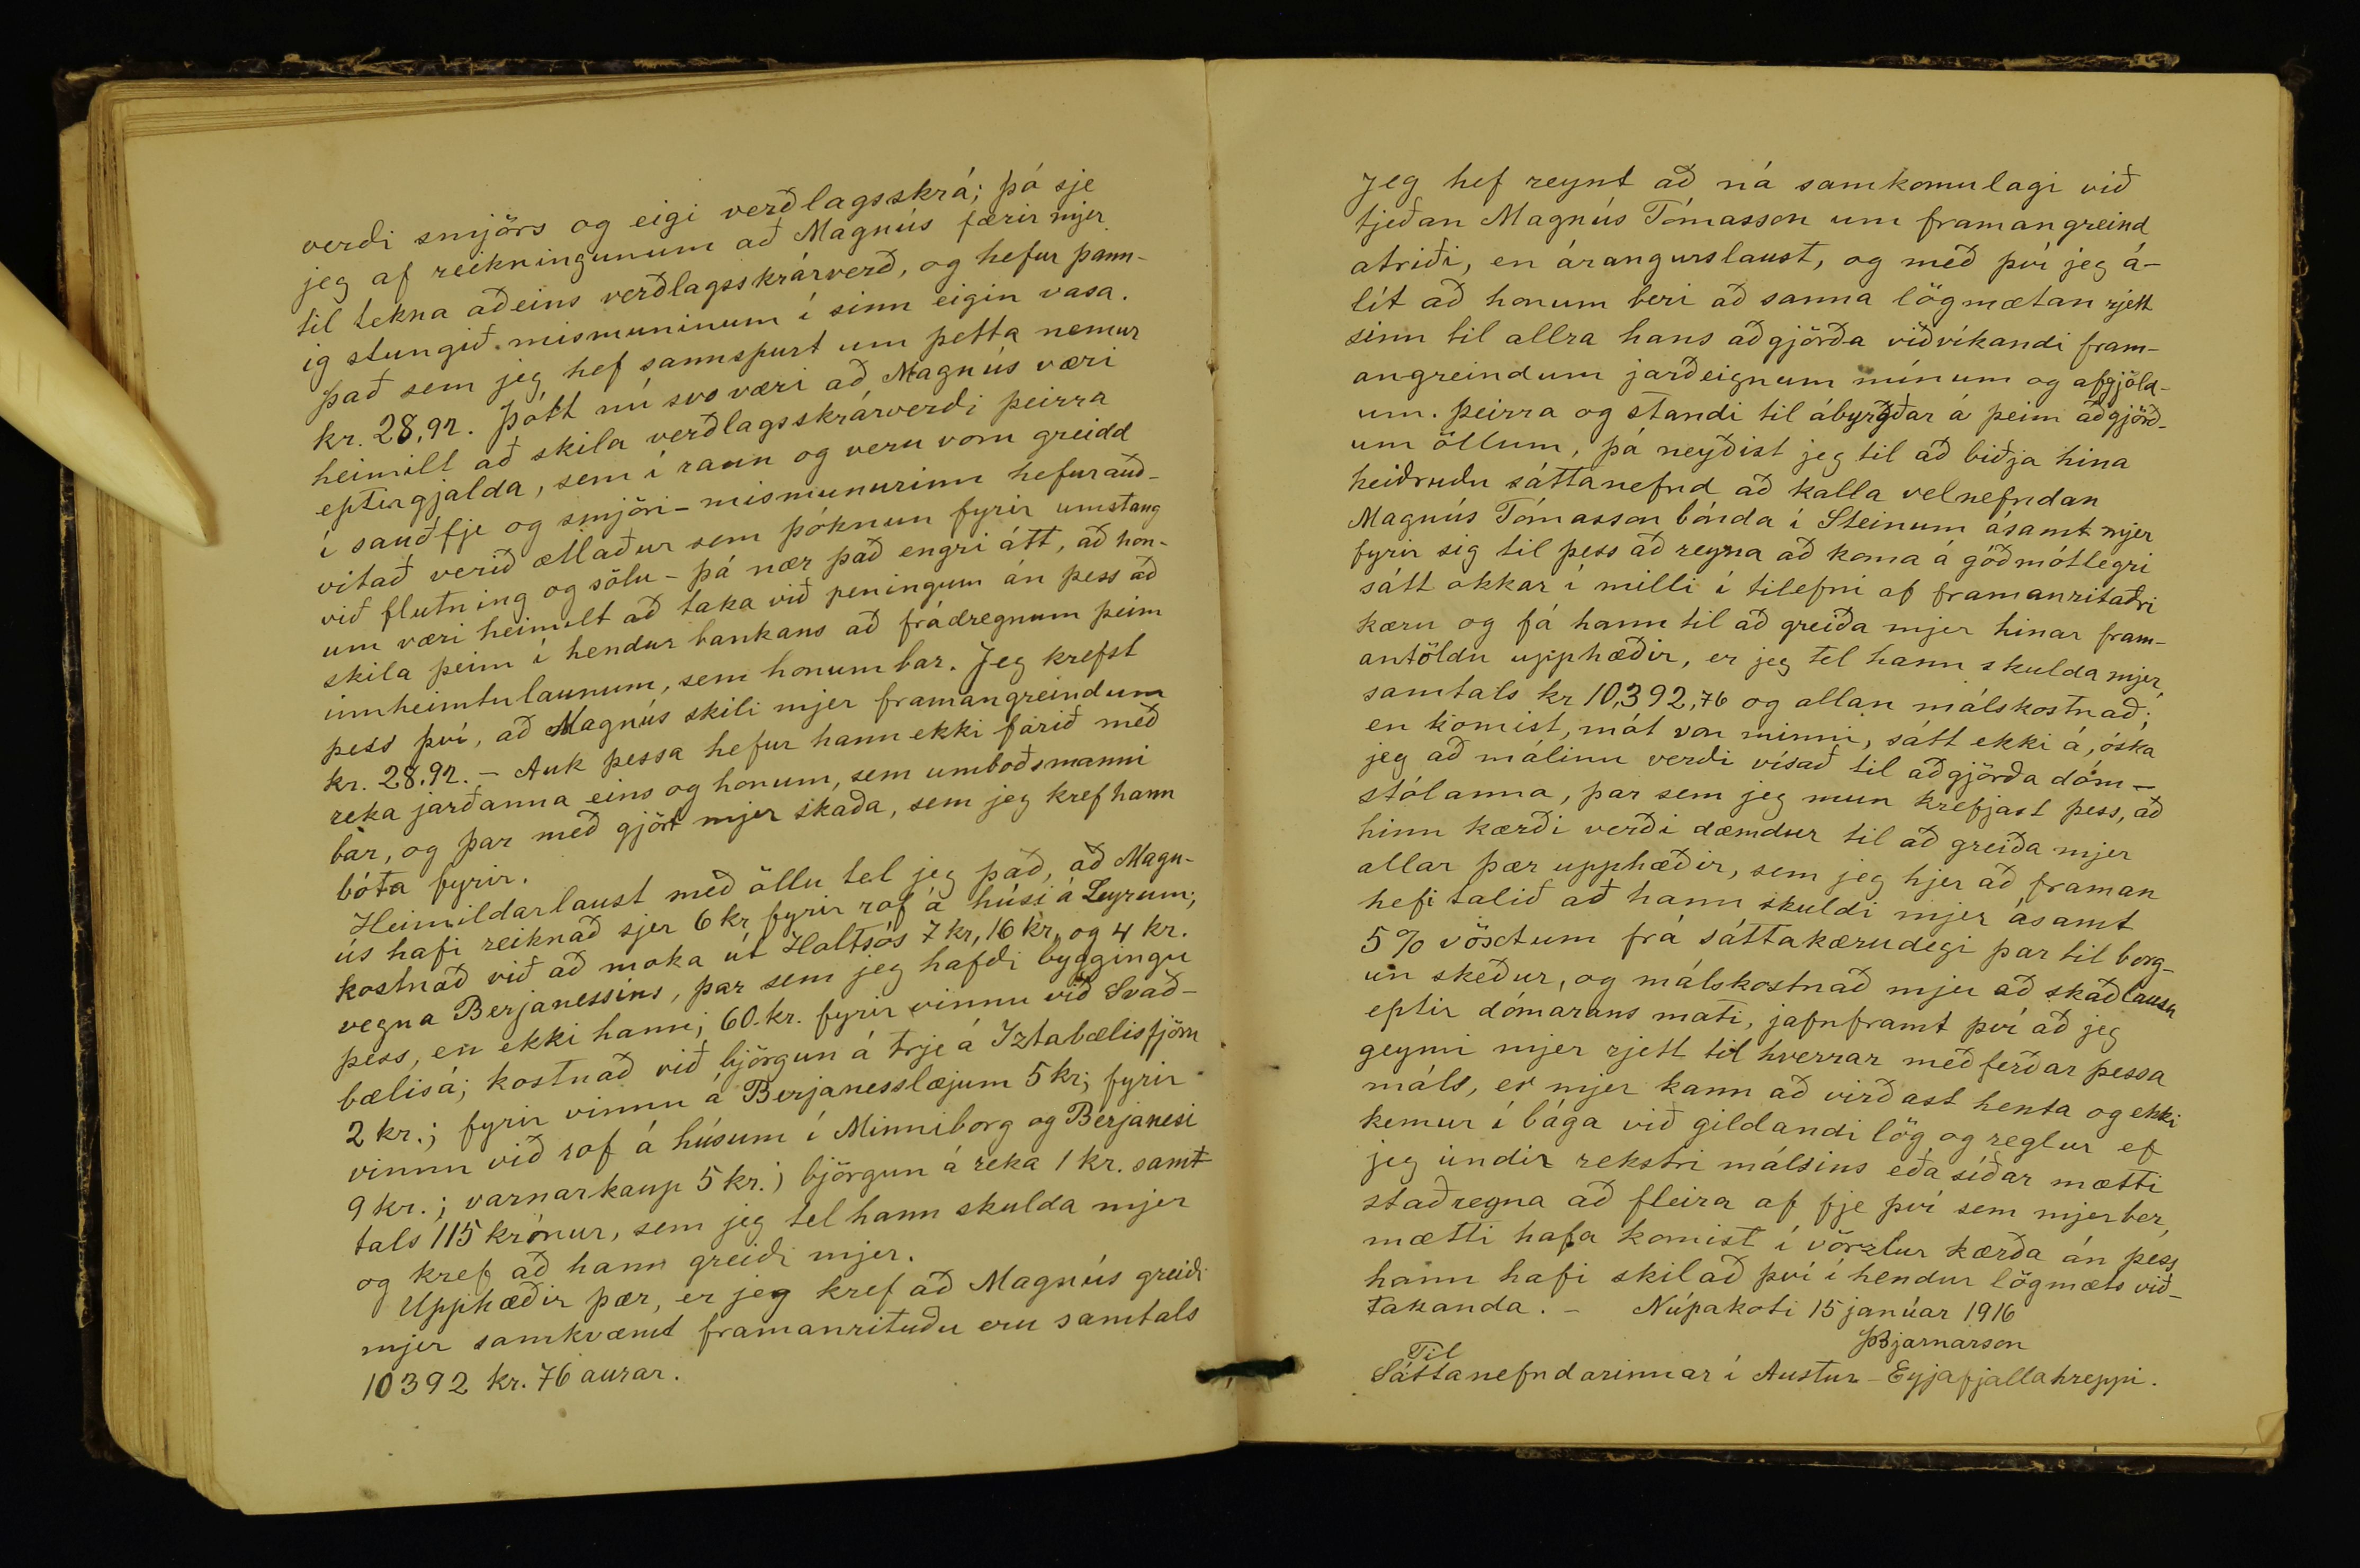 verði smjörs og eigi verðlagsskrá; þó sje
jeg af reikningunum að Magnús færir mjer
til tekna aðeins verðlagsskrárverð, og hefur þann-
ig stungið mismuninum í sinn eigin vasa.
Það sem jeg hef sannspurt um þetta nemur
kr. 28,92. Þótt nú svo væri að Magnús væri
heimilt að skila verðlagsskrárverði þeirra
eptirgjalda, sem í raun og veru vom greidd
í sauðfje og smjöri - mismunurinn hefur auð-
vitað verið ætlaður sem þóknun fyrir umstang
við flutning og sölu - þá nær það engri átt, að hon-
um væri heimilt að taka við peningum án þess að
skila þeim í hendur bankans að frádregnum þeim
innheimtulaunum, sem honum bar. Jeg krefst
þess því, að Magnús skili mjer framangreindum
kr. 28.92. - Auk þessa hefur hann ekki farið með
reka jarðanna eins og honum, sem umboðsmanni
bar, og þar með gjört mjer skaða, sem jeg kref hann
bóta fyrir.
Heimildarlaust með öllu tel jeg það, að Magn-
ús hafi reiknað sjer 6 kr fyrir rof á húsi á Leyrum;
kostnað við að moka út Holtsós 7 kr, 16 kr, og 4 kr.
vegna Berjanessins, þar sem jeg hafði byggingu
þess, en ekki hann; 60. kr. fyrir vinnu við Svað-
bælisá; kostnað við björgun á trje á Yztabælisfjöru
2 kr.; fyrir vinnu á Berjaneslæjum 5 kr; fyrir
vinnu við rof á húsum í Minniborg og Berjanesi
9 kr.; varnarkaup 5 kr.; björgun á reka 1 kr. samt
tals 115 krónur, sem jeg tel hann skulda mjer
og kref að hann greiði mjer.
Upphæðir þær, er jeg kref að Magnús greiði
mjer samkvæmt framanrituðu eru samtals
10392 kr. 76 aurar.
Jeg hef reynt að ná samkomulagi við
tjeðan Magnús Tómasson um framangreind
atriði, en árangurslaust, og með því jeg á-
lít að honum beri að sanna lögmætan rjett
sinn til allra hans aðgjörða viðvíkandi fram-
angreindum jarðeignum mínum og afgjöld-
um. þeirra og standi til ábyrgðar á þeim aðgjörð-
um öllum, þá neyðist jeg til að biðja hina
heiðruðu sáttanefnd að kalla velnefndan
Magnús Tómasson bónda í Steinum ásamt mjer
fyrir sig til þess að reyna að koma á góðmótlegri
sátt okkar í milli í tilefni af framanritaðri
kæru og fá hann til að greiða mjer hinar fram-
antöldu upphæðir, er jeg tel hann skulda mjer,
samtals kr 10,392,76 og allan málskostnað;
en komist, mót von minni, sátt ekki á, óska
jeg að málinu verði vísað til aðgjörða dóm-
stólanna, þar sem jeg mun krefjast þess, að
hinn kærði verði dæmdur til að greiða mjer
allar þær upphæðir, sem jeg hjer að framan
hefi talið að hann skuldi mjer ásamt
5% vöxtum frá sáttakærudegi þar til borg-
un skeður, og málskostnað mjer að skaðlausu
eptir dómarans mati, jafnframt því að jeg
geymi mjer rjett til hverrar meðferðar þessa
máls, er mjer kann að virðast henta og ekki
kemur í bága við gildandi lög og reglur ef
jeg undir rekstri málsins eða síðar mætti
staðreyna að fleira af fje því sem mjer ber,
mætti hafa komist í vörzlur kærða án þess
hann hafi skilað því í hendur lögmæts við-
takanda. - Núpakoti 15 janúar 1916
ÞBjarnarson
Til
Sáttanefndarinnar í Austur-Eyjafjallahreppi.